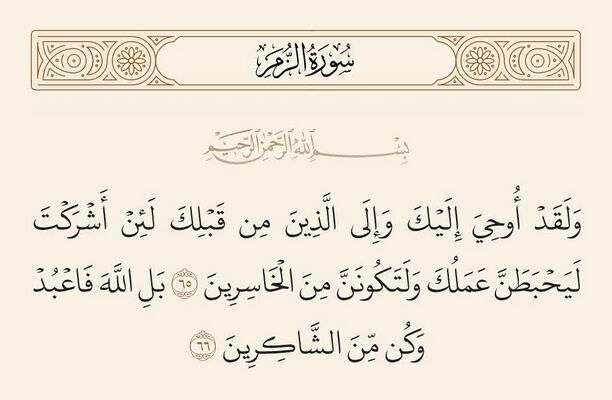 سُورَةُ الزُّمَرِ
بِسْمِ اللَّهِ الرَّحْمَٰنِ الرَّحِيمِ
وَلَقَدْ أُوحِيَ إِلَيْكَ وَإِلَى الَّذِينَ مِن قَبْلِكَ لَئِنْ أَشْرَكْتَ
لَيَحْبَطَنَّ عَمَلُكَ وَلَتَكُونَنَّ مِنَ الْخَاسِرِينَ ٦٥ بَلِ اللَّهَ فَاعْبُدْ
وَكُن مِّنَ الشَّاكِرِينَ ٦٦